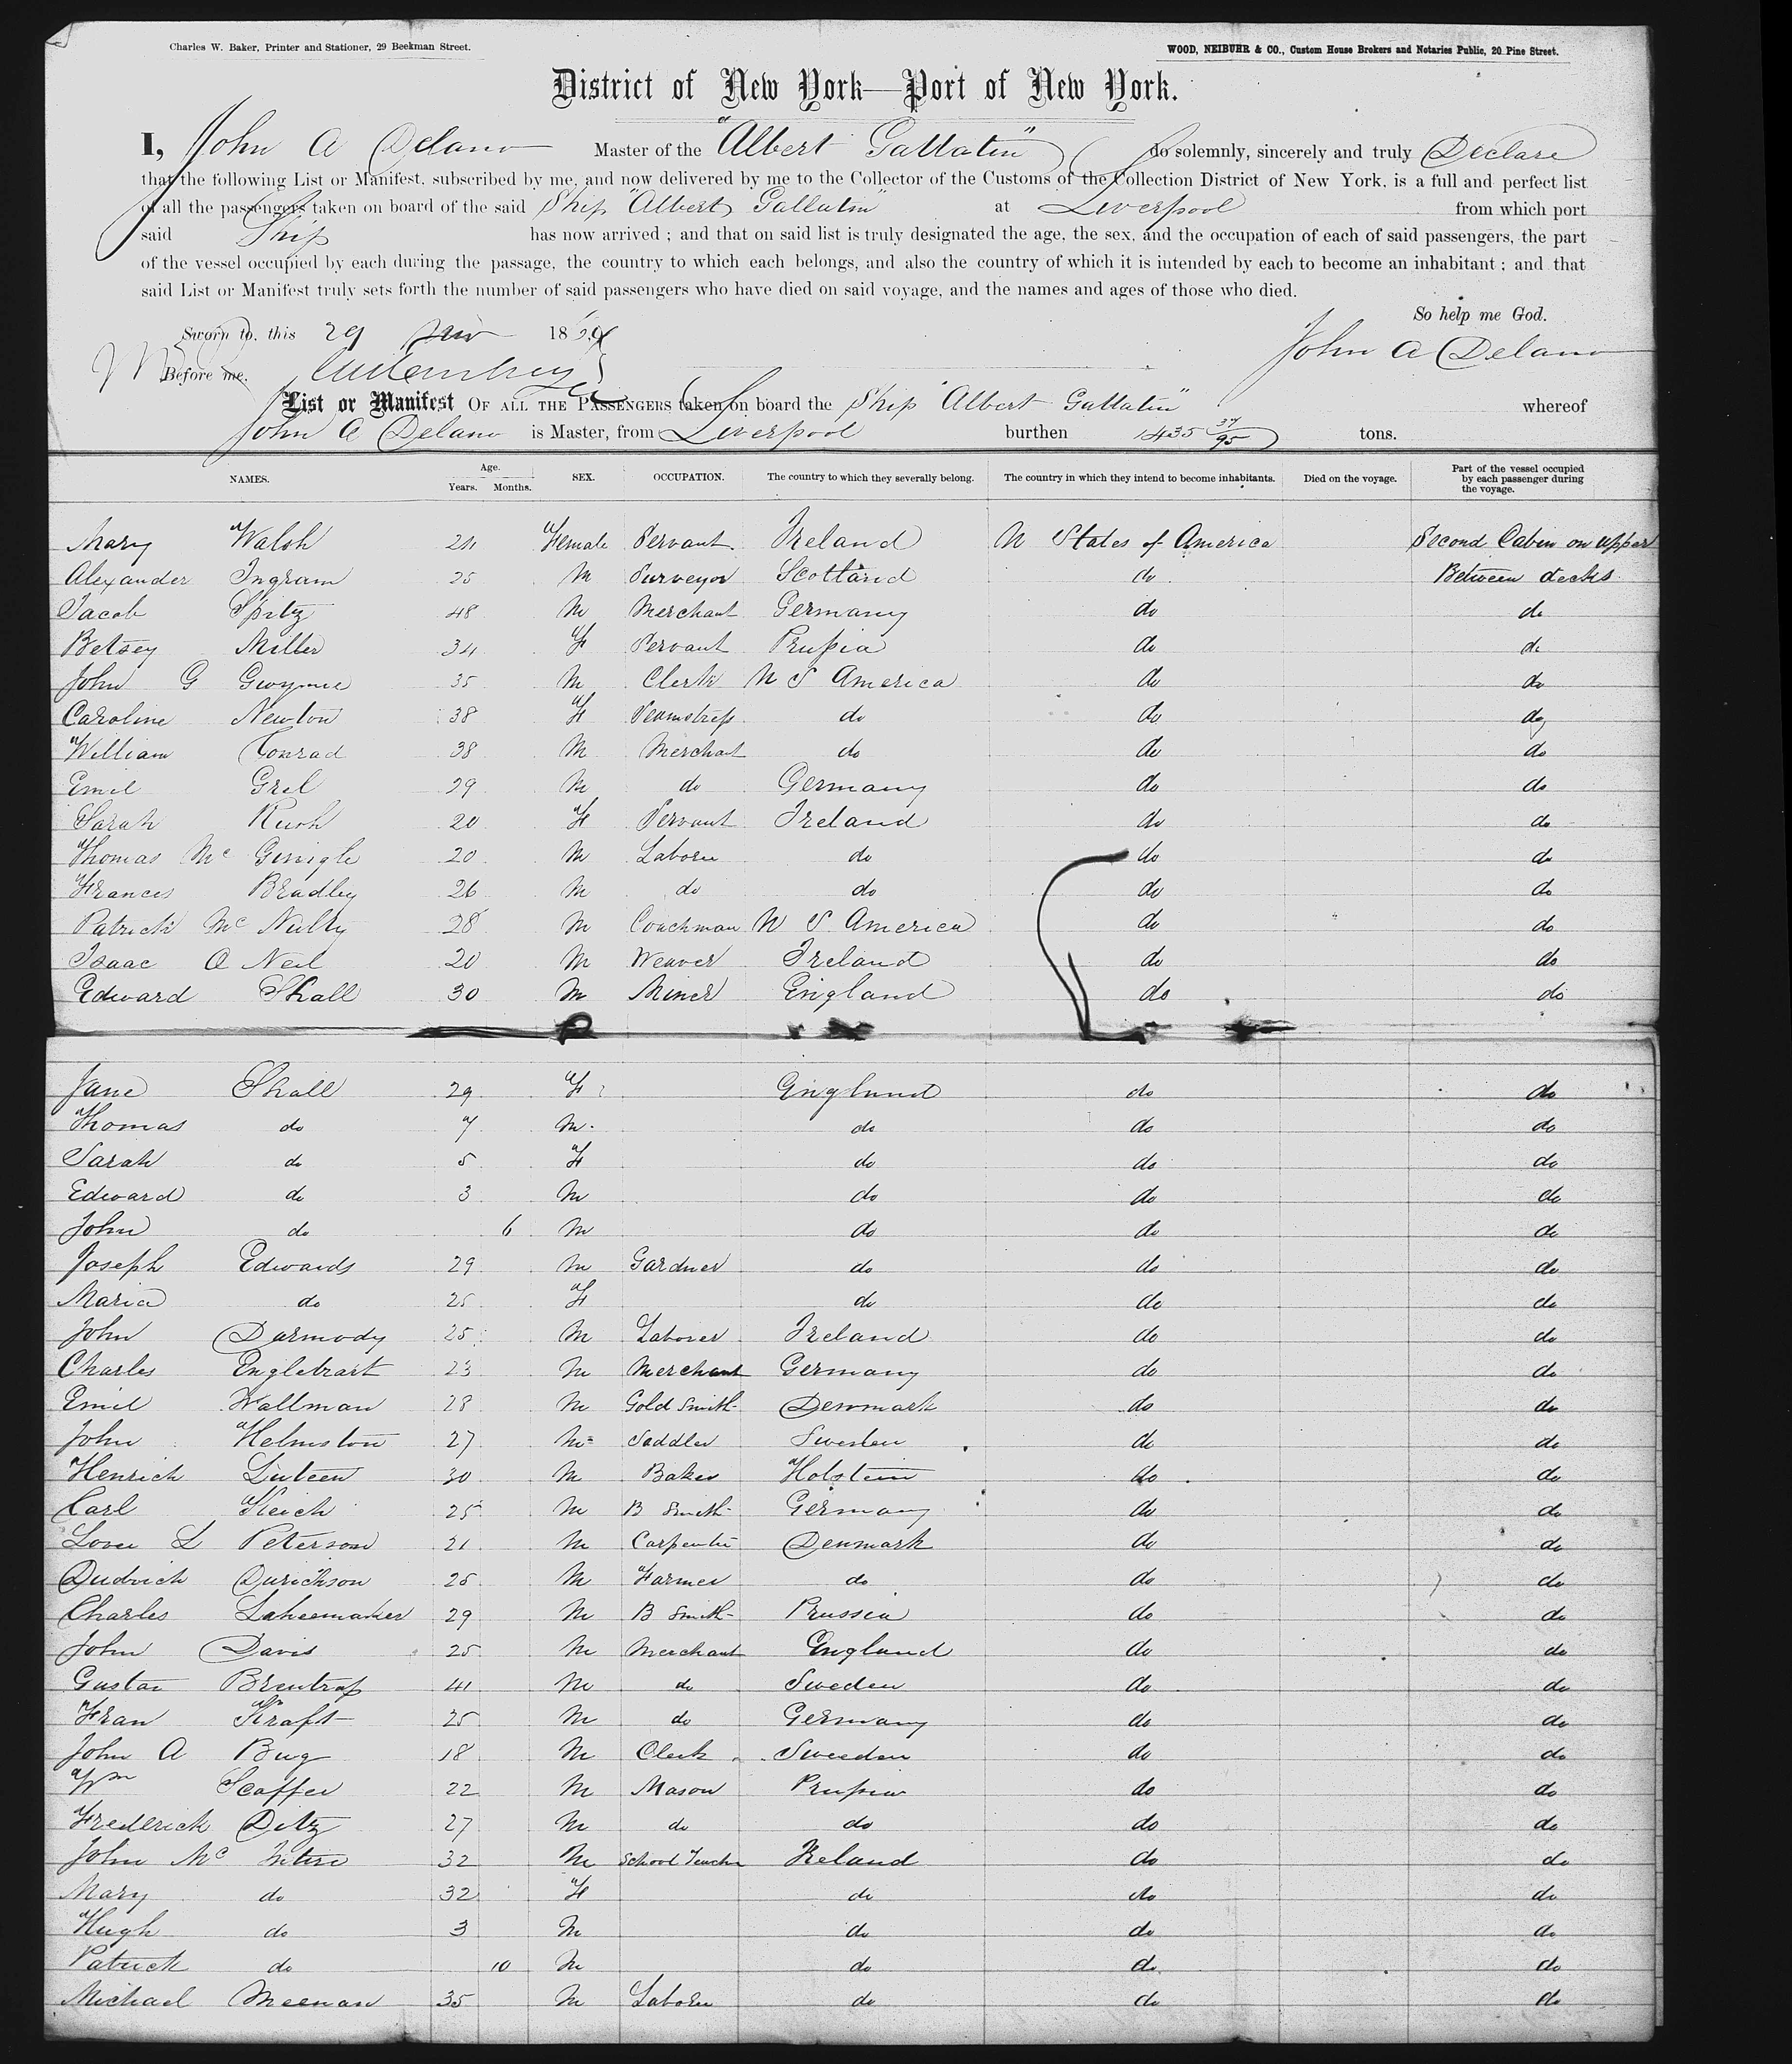 Charles W. Baker, Printer and Stationer, 29 Beekman Street.
WOOD, NEIBUHR & CO., Custom House Brokers and Notaries Public, 20 Pine Street.
District of New York—Port of New York.
I, John A Delano Master of the "Albert Gallatin" do solemnly, sincerely and truly Declare
that the following List or Manifest, subscribed by me, and now delivered by me to the Collector of the Customs of the Collection District of New York, is a full and perfect list
of all the passengers taken on board of the said Ship "Albert Gallatin" at Liverpool from which port
said Ship has now arrived ; and that on said list is truly designated the age, the sex, and the occupation of each of said passengers, the part
of the vessel occupied by each during the passage, the country to which each belongs, and also the country of which it is intended by each to become an inhabitant ; and that
said List or Manifest truly sets forth the number of said passengers who have died on said voyage, and the names and ages of those who died.
So help me God.
Sworn to, this 29 18
John A Delano
Before me.
List or Manifest OF ALL THE PASSENGERS taken on board the Ship "Albert Gallatin" whereof
John A Delano is Master, from Liverpool burthen 1435 37/95 tons.
NAMES. Age. Years. Months. SEX. OCCUPATION. The country to which they severally belong. The country in which they intend to become inhabitants. Died on the voyage. Part of the vessel occupied by each passenger during the voyage.
Mary Walsh 24 Female Servant Ireland U States of America Second Cabin on upper
Alexander Ingram 25 M Surveyor Scotland do Between decks
Jacob Spitz 48 M Merchant Germany do do
Betsey Miller 34 F Servant Prussia do do
John G Gwynne 35 M Clerk U S America do do
Caroline Newton 38 F Seamstress do do do
William Conrad 38 M Merchant do do do
Emil Grel 29 M do Germany do do
Sarah Rush 20 F Servant Ireland do do
Thomas Mc 20 M Laborer do do do
Frances Bradley 26 M do do do do
Patrick Mc Nulty 28 M Coachman U S America do do
Isaac O Neil 20 M Weaver Ireland do do
Edward Shall 30 M Miner England do do
Jane Shall 29 F England do do
Thomas do 7 M do do do
Sarah do 5 F do do do
Edward do 3 M do do do
John do 6 M do do do
Joseph Edwards 29 M Gardner do do do
Maria do 25 F do do do
John Darmody 25 M Laborer Ireland do do
Charles Englebrart 23 M Merchant Germany do do
Emil Wallman 28 M Gold Smith Denmark do do
John Helmston 27 M Saddler Sweden do do
Henrich Luteen 30 M Baker Holstein do do
Carl Kleich 25 M B Smith Germany do do
L Peterson 21 M Carpenter Denmark do do
Dudvich Durickson 25 M Farmer do do do
Charles Laheemaker 29 M B Smith Prussia do do
John Davis 25 M Merchant England do do
Gustav Brentrap 41 M do Sweden do do
Fran Kraft 25 M do Germany do do
John A Bug 18 M Clerk Sweeden do do
Wm Scaffer 22 M Mason Prussia do do
Frederick Ditz 27 M do do do do
John Mc Intire 32 M School Teacher Ireland do do
Mary do 32 F do do do
Hugh do 3 M do do do
Patrick do 10 M do do do
Michael Meenan 35 M Laborer do do do